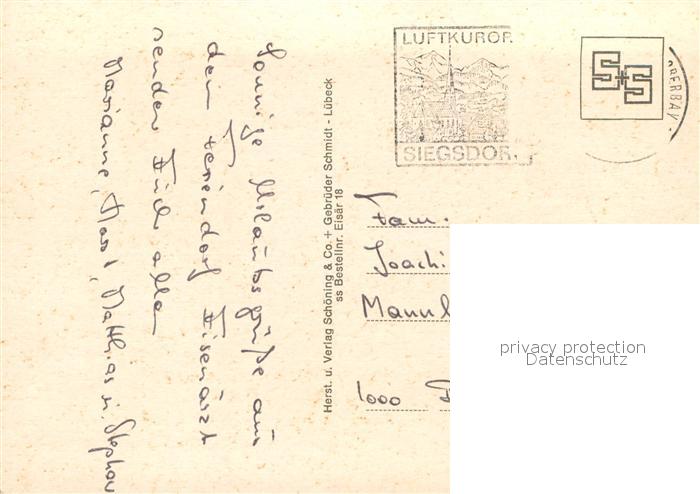 Sonnige Urlaubsgrüße aus
dem Feriendorf Eisenärzt
senden Euch allen
Marianne, Karl, Matthias u. Stephan
Herst. u. Verlag Schöning & Co. + Gebrüder Schmidt - Lübeck
ss Bestellnr. Eisär 18
LUFTKUROR
SIEGSDOR
S+S
ERBAY
Fam.
Joachi
Mann
1000
privacy protection
Datenschutz